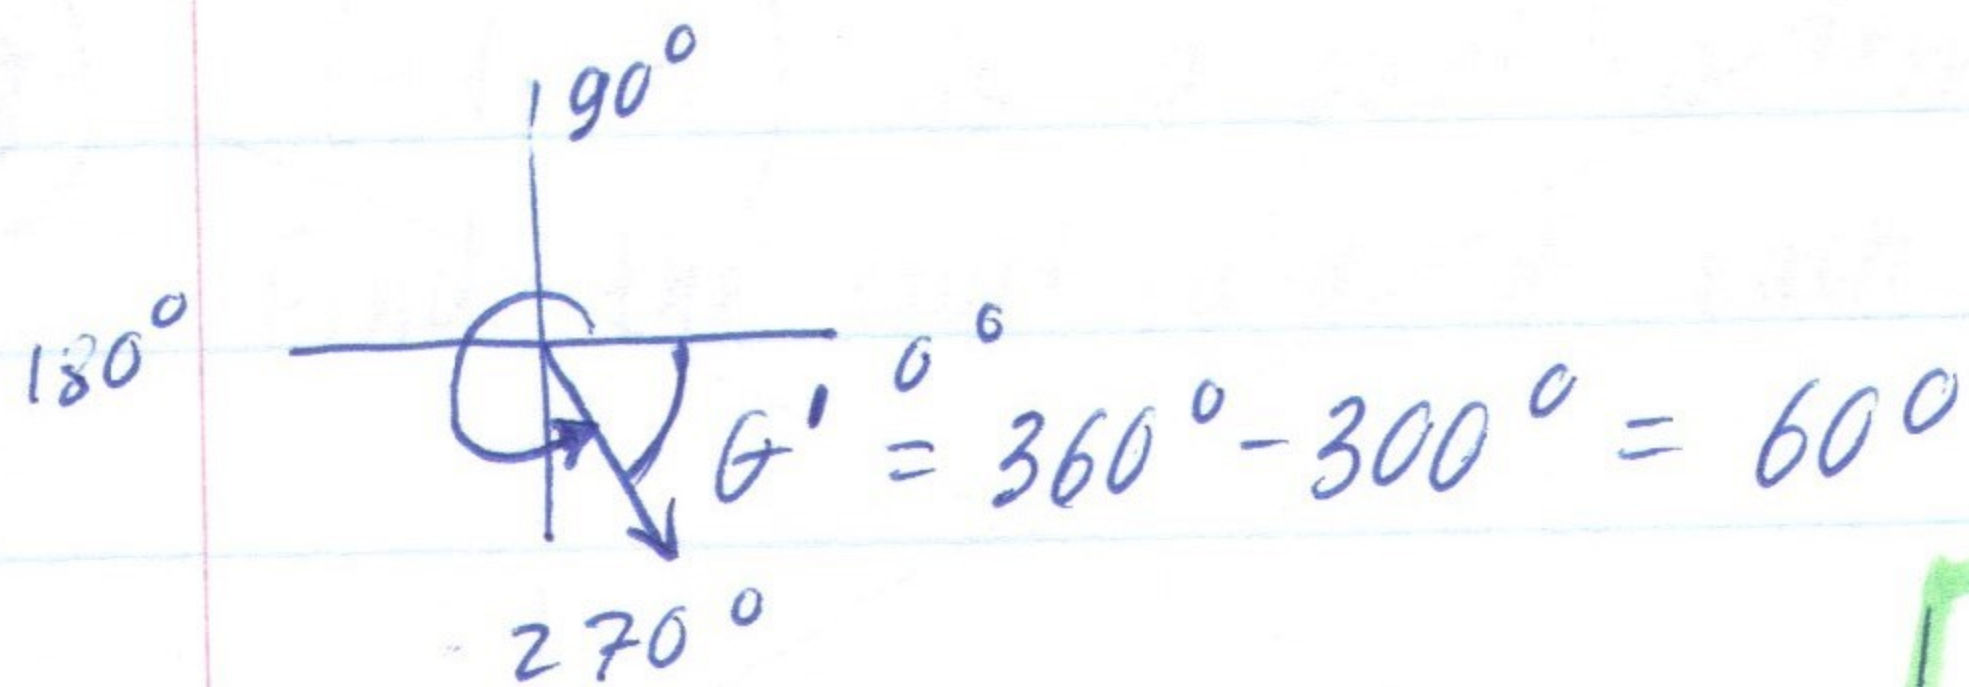 90°
180°
0°
θ' = 360° - 300° = 60°
270°